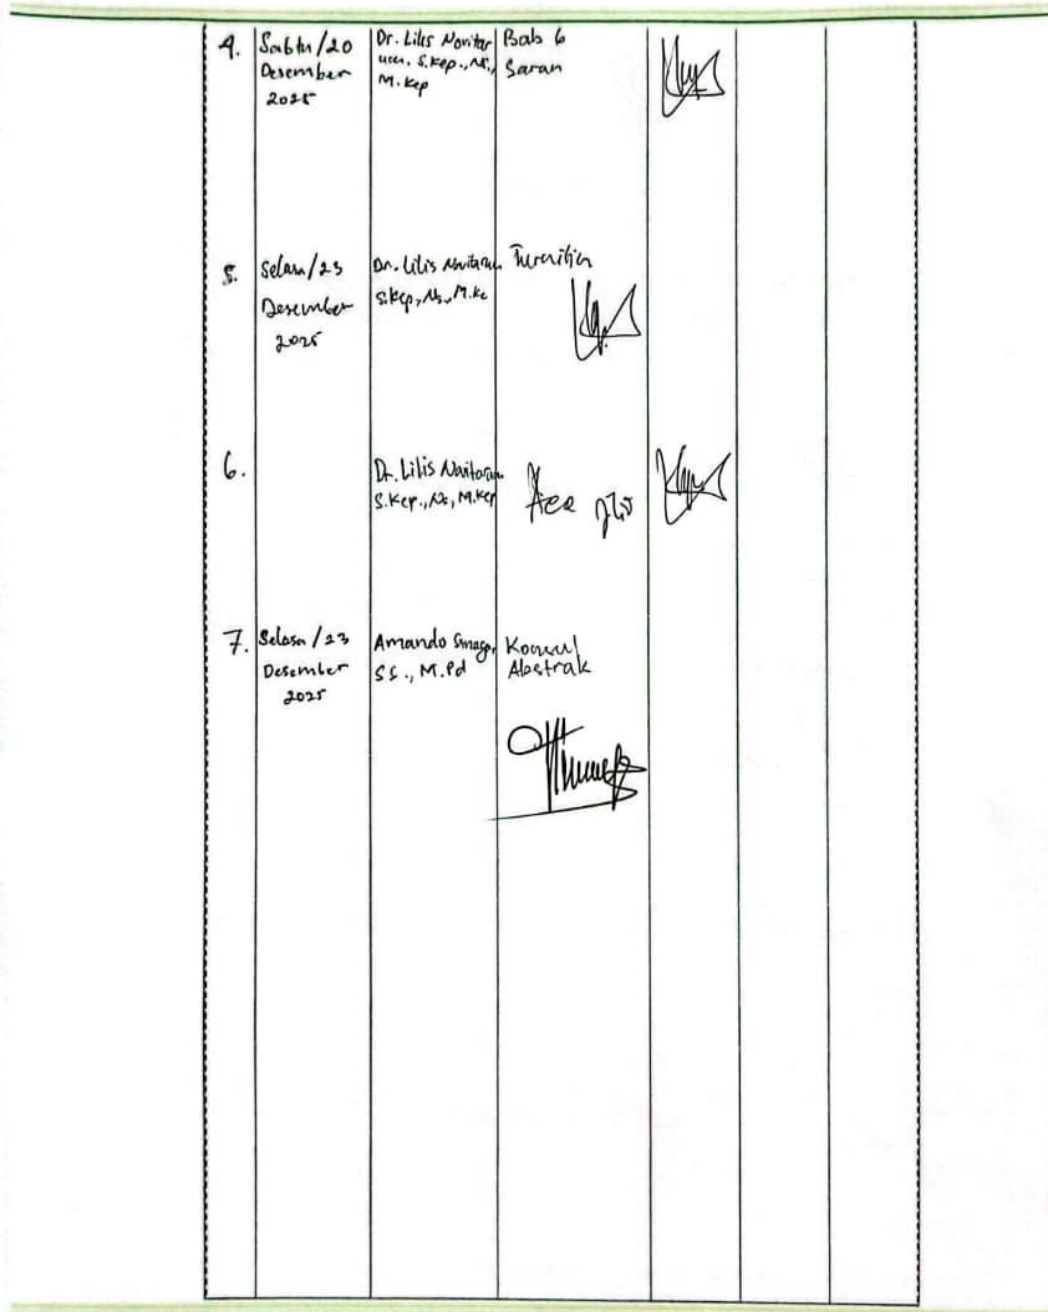 4.
Sabtu/20
Desember
2025
Dr. Lilis Novitar
um. S.Kep., Ns.,
M.Kep
Bab 6
Saran
5.
Selasa/23
Desember
2025
Dr. Lilis Novitarum
S.Kep., Ns., M.Ke
6.
Dr. Lilis Novitarum
S.Kep., Ns, M.Kep
Acc
7.
Selasa/23
Desember
2025
Amando Sinaga,
SS., M.Pd
Konsul
Abstrak